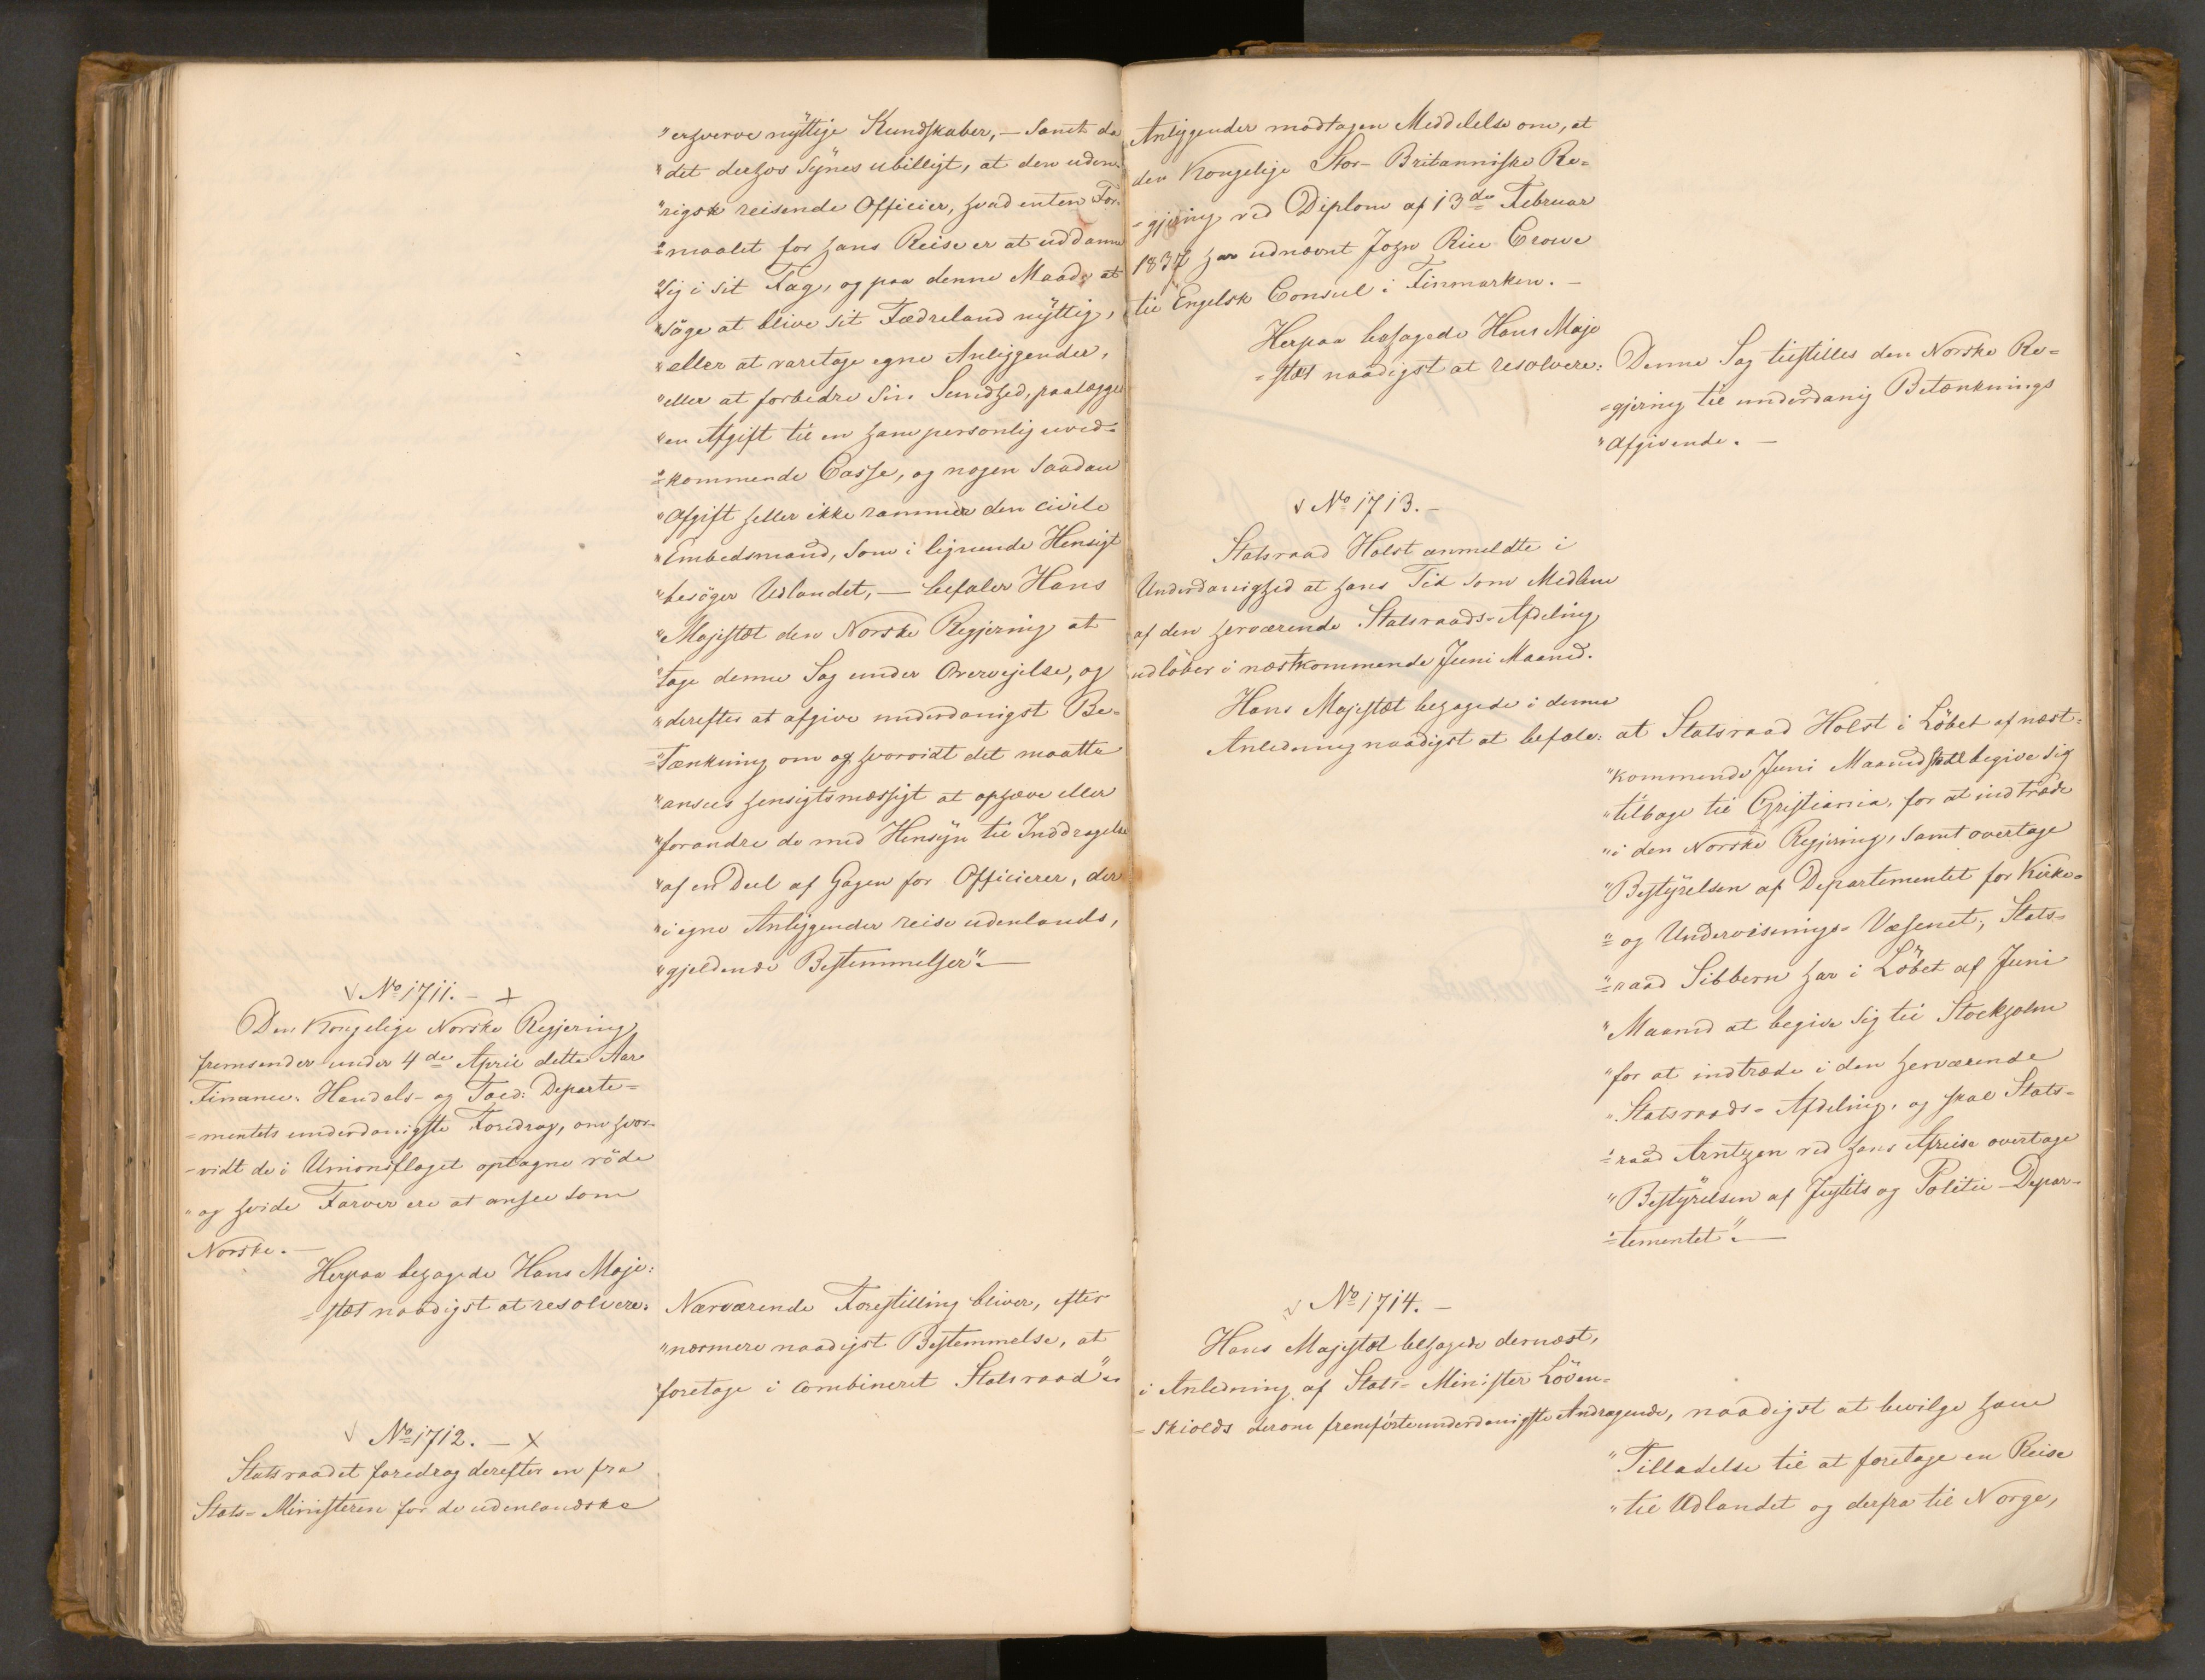 "erhverve nyttige Kundskaber, — samt da
"det derhos synes ubilligt, at den uden-
"rigsk reisende Officier, hvad enten For-
"=maalet for hans Reise er at uddanne
"sig i sit Fag, og paa denne Maade at
"søge at blive sit Fædreland nyttig,
"eller at varetage egne Anliggender,
"eller at forbedre sin Sundhed, paalægges
"en Afgift til en ham personlig uved=
"=kommende Casse, og nogen saadan
"Afgift heller ikke rammer den civile
"Embedsmand, som i lignende Hensigt
"besøger Udlandet, — befaler Hans
"Majestæt den Norske Regjering at
"tage denne Sag under Overvejelse, og
"derefter at afgive underdanigst Be-
"=tænkning om og hvorvidt det maatte
"ansees hensigtsmæssigt at ophæve eller
"forandre de med Hensyn til Inddragelse
"af en Deel af Gagen for Officierer, der
"i egne Anliggender reise udenlands,
"gjeldende Bestemmelser". —
√ No 1711. - +
Den Kongelige Norske Regjering
fremsender under 4de April dette Aar
Finance- Handels- og Told- Departe=
=mentets underdanigste Foredrag, om hvor-
-vidt de i Unionsflaget optagne røde
"og hvide Farver ere at ansee som
Norske. —
Herpaa behagede Hans Maje:
=stæt naadigst at resolvere:
Nærværende Forestilling bliver, efter
"nærmere naadigst Bestemmelse, at
"foretage i combineret Statsraad".
√ No 1712. - x
Statsraadet foredrog derefter en fra
Stats=Ministeren for de udenlandske
Anliggender modtagen Meddelelse om, at
den Kongelige Stor-Britanniske Re=
=gjering ved Diplom af 13de Februar
1837 har udnævnt John Rice Crowe
til Engelsk Consul i Finmarken. —
Herpaa behagede Hans Maje
=stæt naadigst at resolvere:
Denne Sag tilstilles den Norske Re=
=gjering til underdanig Betænknings
"Afgivende. —
√ No 1713. -
Statsraad Holst anmeldte i
Underdanighed at hans Tid som Medlem
af den herværende Statsraads-Afdeling
udløber i næstkommende Juni Maaned.
Hans Majestæt behagede i denne
Anledning naadigst at befale:
at Statsraad Holst i Løbet af næst=
"kommende Juni Maaned skal begive sig
"tilbage til Christiania, for at indtræde
"i den Norske Regjering, samt overtage
"Bestyrelsen af Departementet for Kirke=
"=og Underviisnings-Væsenet; Stats=
"=raad Sibbern har i Løbet af Juni
"Maaned at begive sig til Stockholm
"for at indtræde i den herværende
"Statsraads-Afdeling, og skal Stats=
"=raad Arntzen ved hans Afreise overtage
"Bestyrelsen af Justits og Politie-Depar-
"=tementet". —
√ No 1714. —
Hans Majestæt behagede dernæst,
i Anledning af Stats-Minister Löven=
=skiolds derom fremførte underdanigste Andragende, naadigst at bevilge ham
"Tilladelse til at foretage en Reise
"til Udlandet og derfra til Norge,